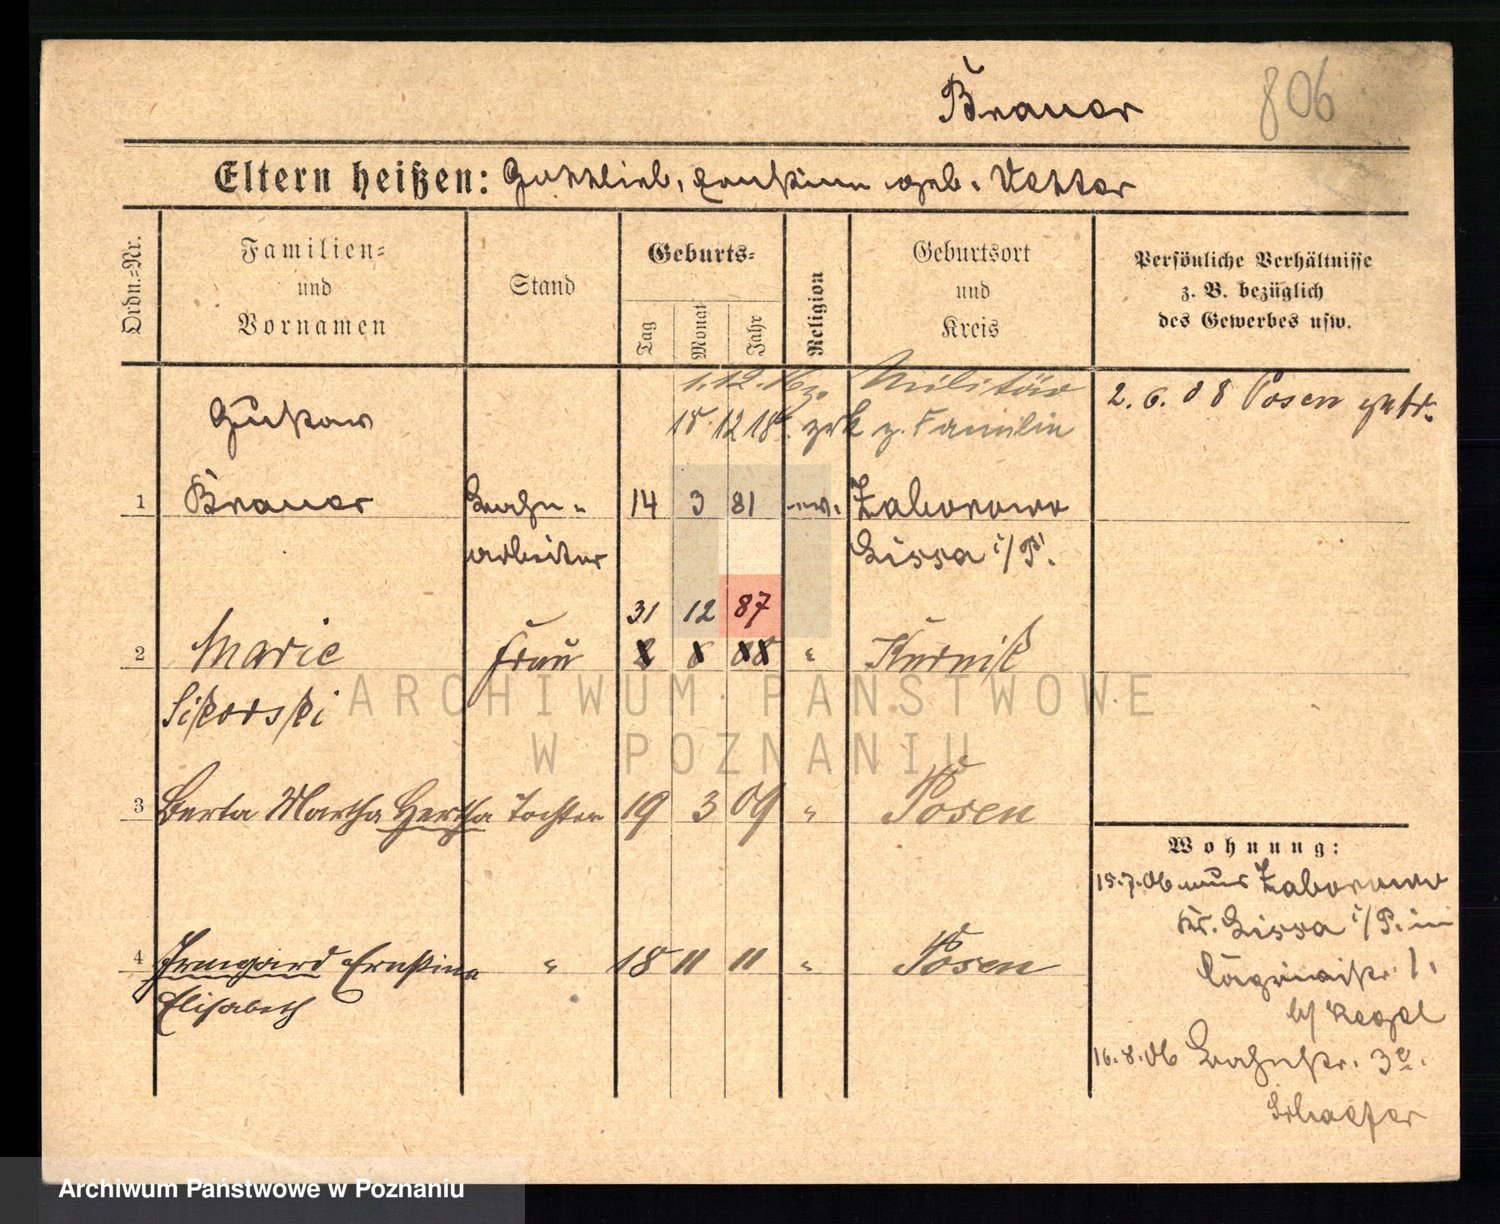 Brauer
806
Eltern heißen: Gottlieb, Ernstine geb. Vetter
Ordn.-Nr.
Familien-
und
Vornamen
Stand
Geburts-
Tag
Monat
Jahr
Religion
Geburtsort
und
Kreis
Persönliche Verhältnisse
z. B. bezüglich
des Gewerbes usw.
1.12.16 z. Militär
18.12.18. zrk z. Familie
2.6.08 Posen getr.
Gustav
1 Brauer Bahn- 14 3 81 ev. Zaborowo
arbeiter Lissa i/P.
31 12 87
2 Marie Frau 2 8 88 " Kurnik
Sikorski
ARCHIWUM PAŃSTWOWE
W POZNANIU
3 Berta Martha Hertha Tochter 19 3 09 " Posen
Wohnung:
15.7.06 aus Zaborowo
Kr. Lissa i/P. in
1.
b/ Kegel
4 Irmgard Ernstine " 18 11 11 " Posen
Elisabeth
16.8.06 Bahnstr. 3
Schaefer
Archiwum Państwowe w Poznaniu